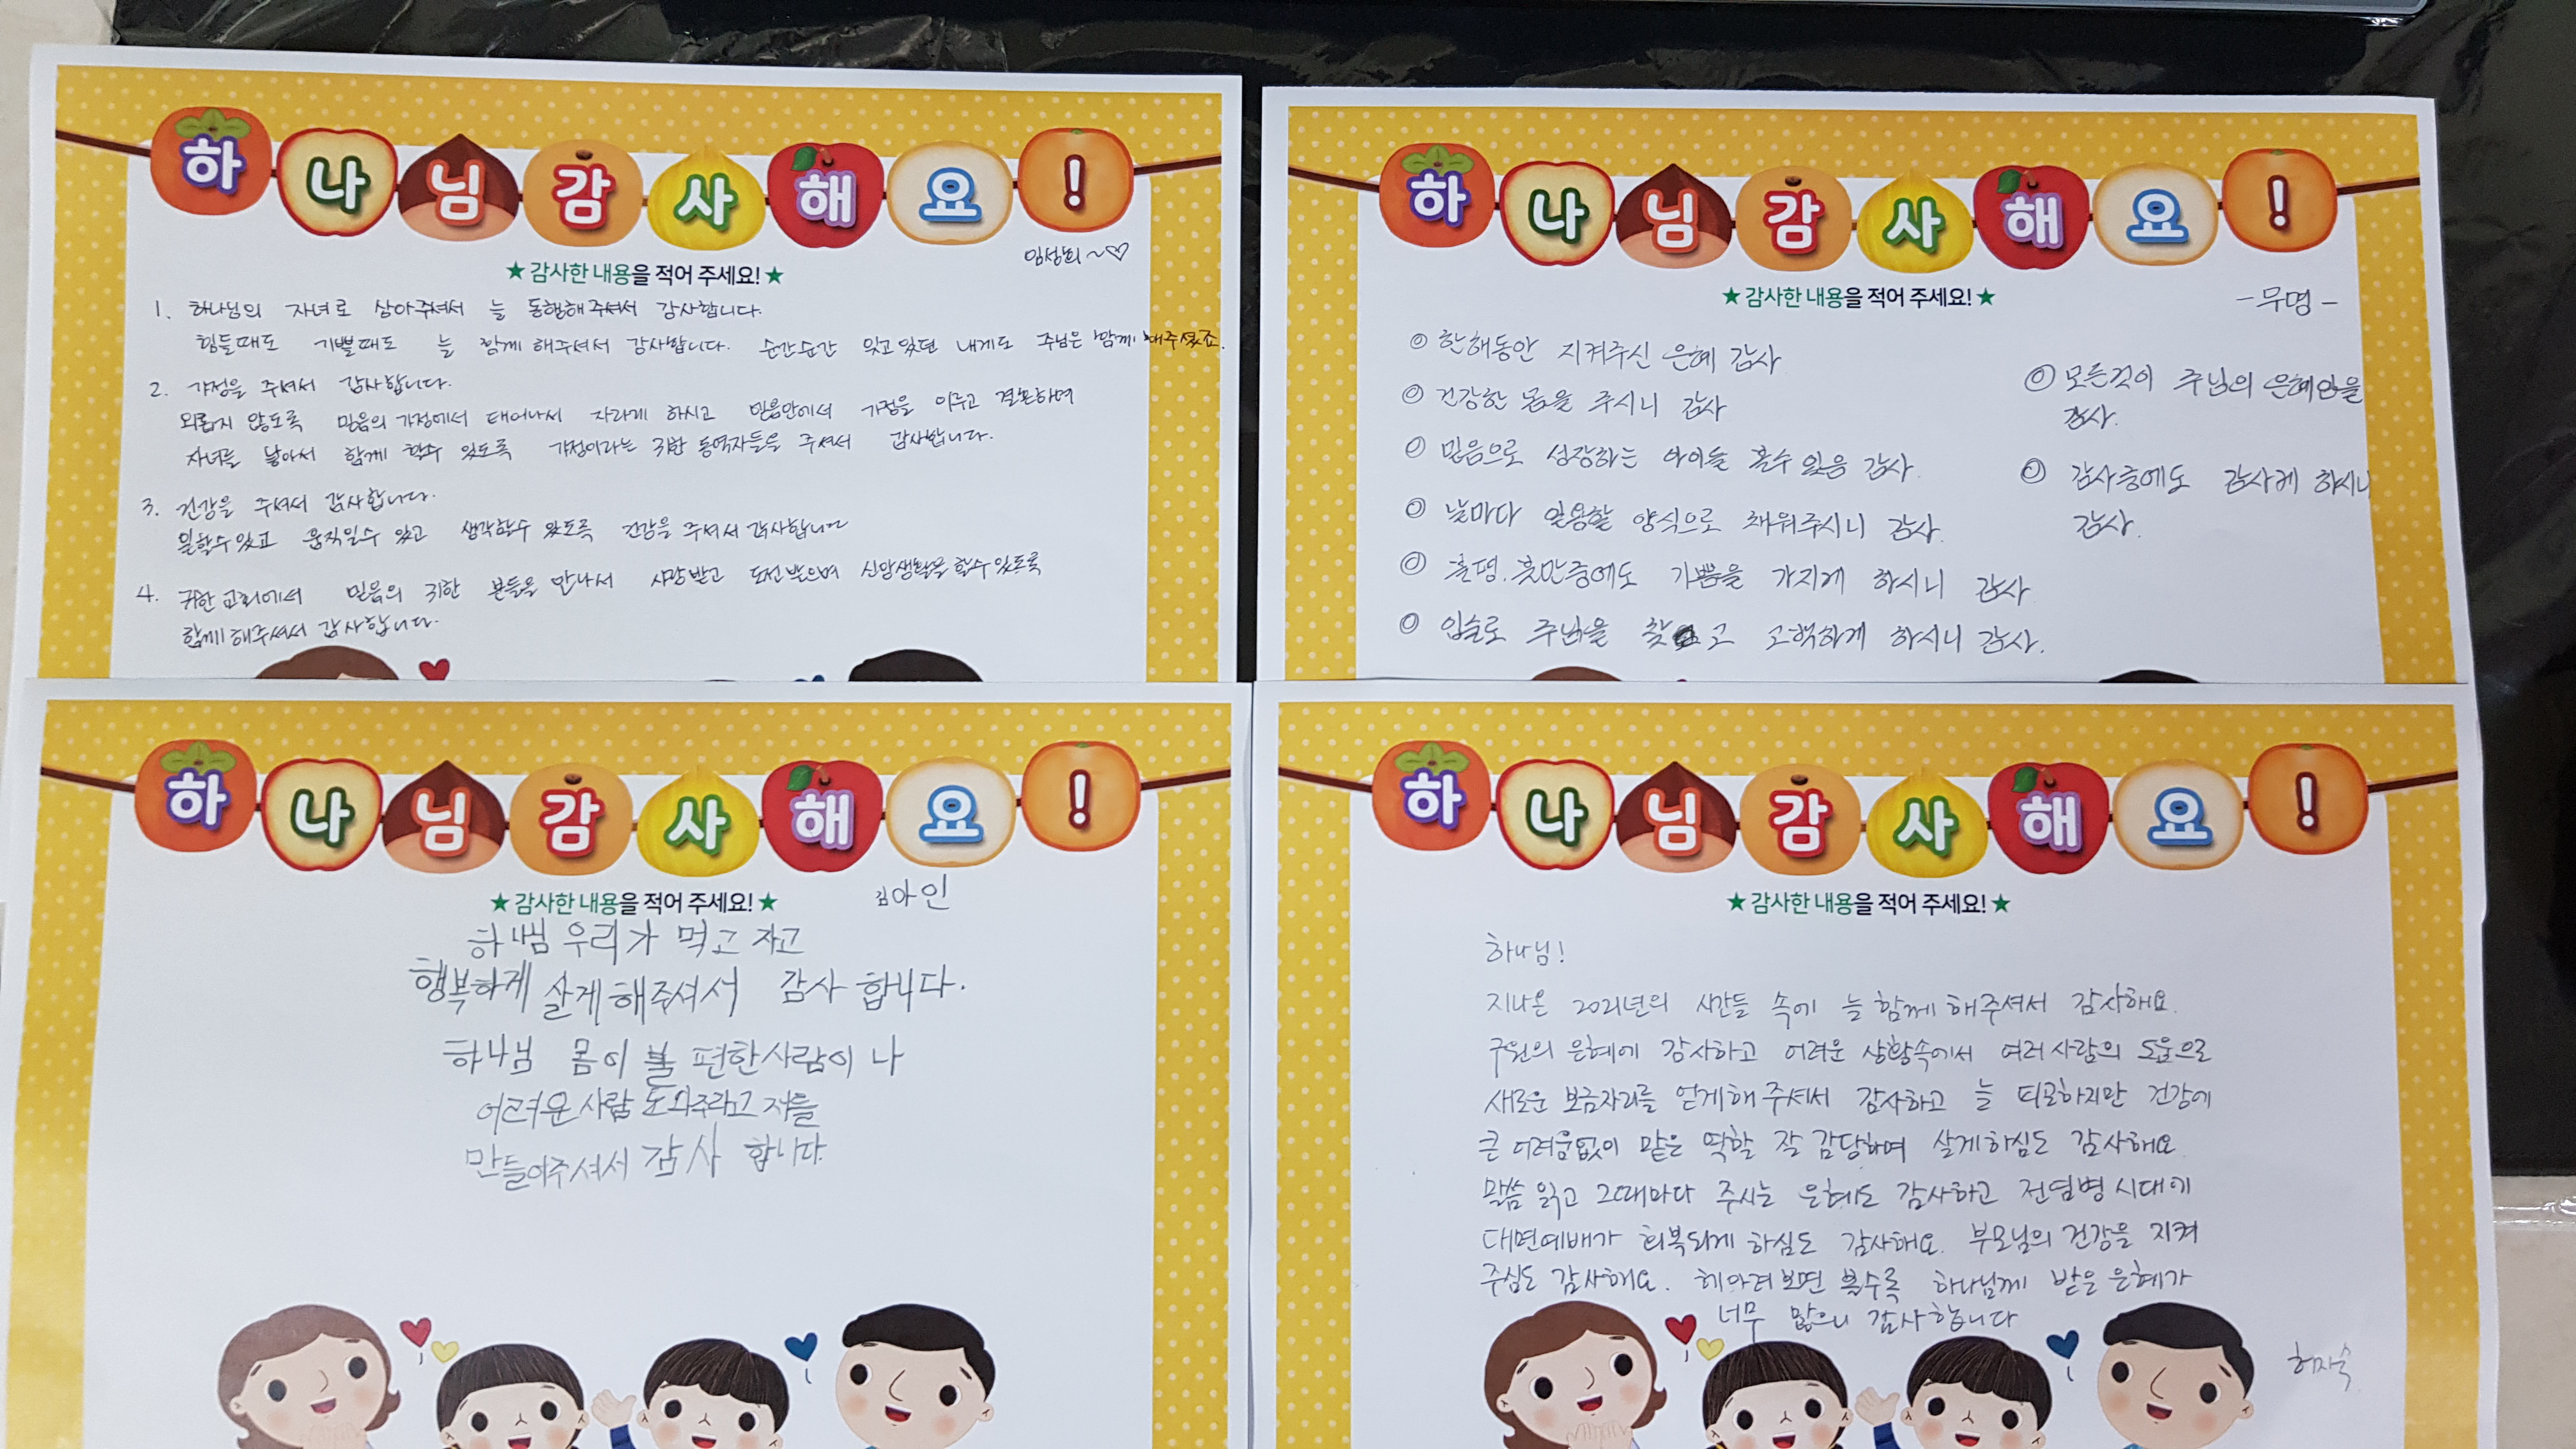 하나님감사해요!
임성희~♡
★감사한 내용을 적어 주세요!★
1. 하나님의 자녀로 삼아주셔서 늘 동행해주셔서 감사합니다.
힘들때도 기쁠때도 늘 함께 해주셔서 감사합니다. 순간순간 잊고있던 내게도 주님은 함께 해주셨죠.
2. 가정을 주셔서 감사합니다.
외롭지 않도록 믿음의 가정에서 태어나서 자라게 하시고 믿음안에서 가정을 이루고 결혼하며
자녀를 낳아서 함께 할수 있도록 가정이라는 귀한 동역자들을 주셔서 감사합니다.
3. 건강을 주셔서 감사합니다.
일할수있고 움직일수 있고 생각할수 있도록 건강을 주셔서 감사합니다
4. 귀한교회에서 믿음의 귀한 분들을 만나서 사랑받고 도전받으며 신앙생활을 할수있도록
함께해주셔서 감사합니다.
하나님감사해요!
★감사한 내용을 적어 주세요!★
-무명-
◎ 한해동안 지켜주신 은혜 감사
◎ 건강한 몸을 주시니 감사
◎ 믿음으로 성장하는 아이들 볼수 있음 감사.
◎ 날마다 일용할 양식으로 채워주시니 감사.
◎ 불평.불만중에도 기쁨을 가지게 하시니 감사
◎ 입술로 주님을 찾고 고백하게 하시니 감사.
◎ 모든것이 주님의 은혜임을
감사.
◎ 감사중에도 감사케 하시니
감사.
하나님감사해요!
★감사한 내용을 적어 주세요!★
김아인
하나님 우리가 먹고 자고
행복하게 살게해주셔서 감사 합니다.
하나님 몸이 불 편한사람이 나
어려운사람 도와주라고 저를
만들어주셔서 감사 합니다.
하나님감사해요!
★감사한 내용을 적어 주세요!★
하나님!
지나온 2021년의 시간들 속에 늘 함께 해주셔서 감사해요.
구원의 은혜에 감사하고 어려운 상황속에서 여러사람의 도움으로
새로운 보금자리를 얻게해 주셔서 감사하고 늘 피곤하지만 건강에
큰 어려움없이 맡은 역할 잘 감당하며 살게하심도 감사해요.
말씀 읽고 그때마다 주시는 은혜도 감사하고 전염병시대에
대면예배가 회복되게 하심도 감사해요. 부모님의 건강을 지켜
주심도 감사해요. 헤아려보면 볼수록 하나님께 받은 은혜가
너무 많으니 감사합니다
허자숙